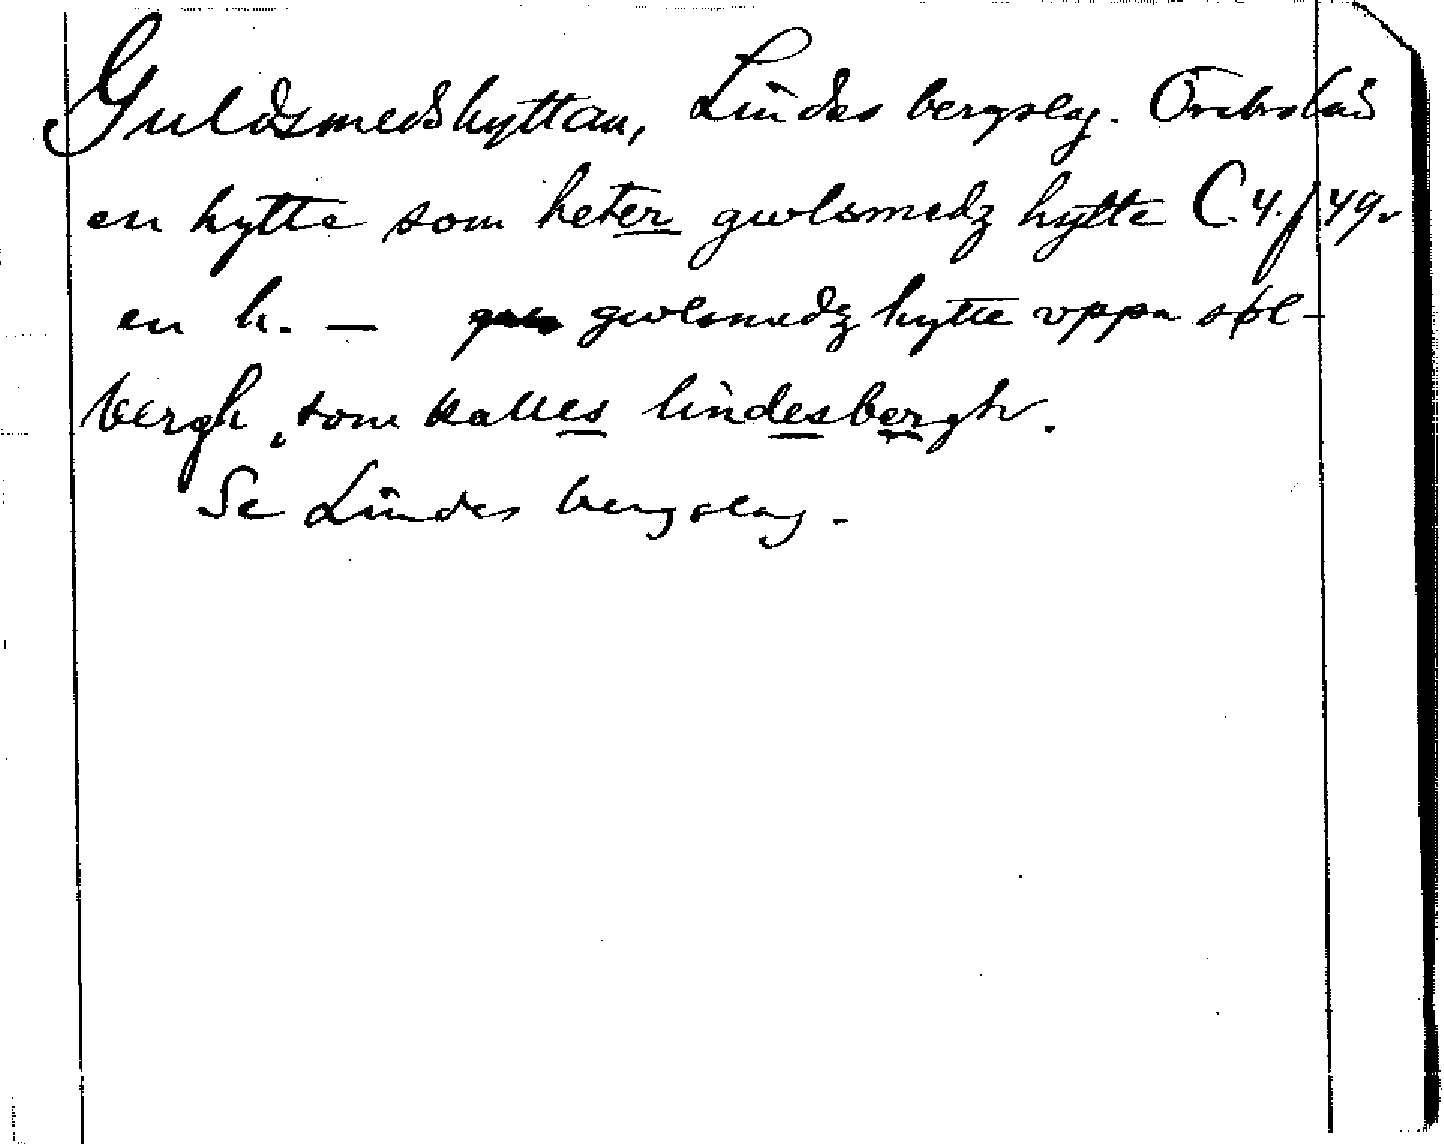 Guldsmedshyttan, Lindes bergslag. Örebro län
en hytte som heter gwlsmedz hytte C 4. f 49v
en h. — gwlsmedz hytte vppa søl-
bergh, som kalles lindesbergh.
Se Lindes bergslag.